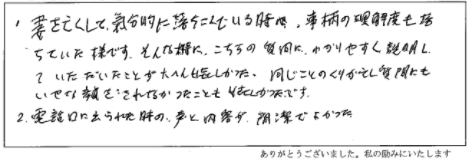 1. 妻を亡くして、気分的に落ちこんでいる時、事柄の理解度も落
ちていた様です。そんな様に、こちらの質問に、わかりやすく説明し
ていただいたことが大へん嬉しかった。同じことのくりかえし質問にも
いやな顔をされなかったことも嬉しかったです。
2. 電話口に出られた時の、声と内容が、明潔でよかった
ありがとうございました。私の励みにいたします